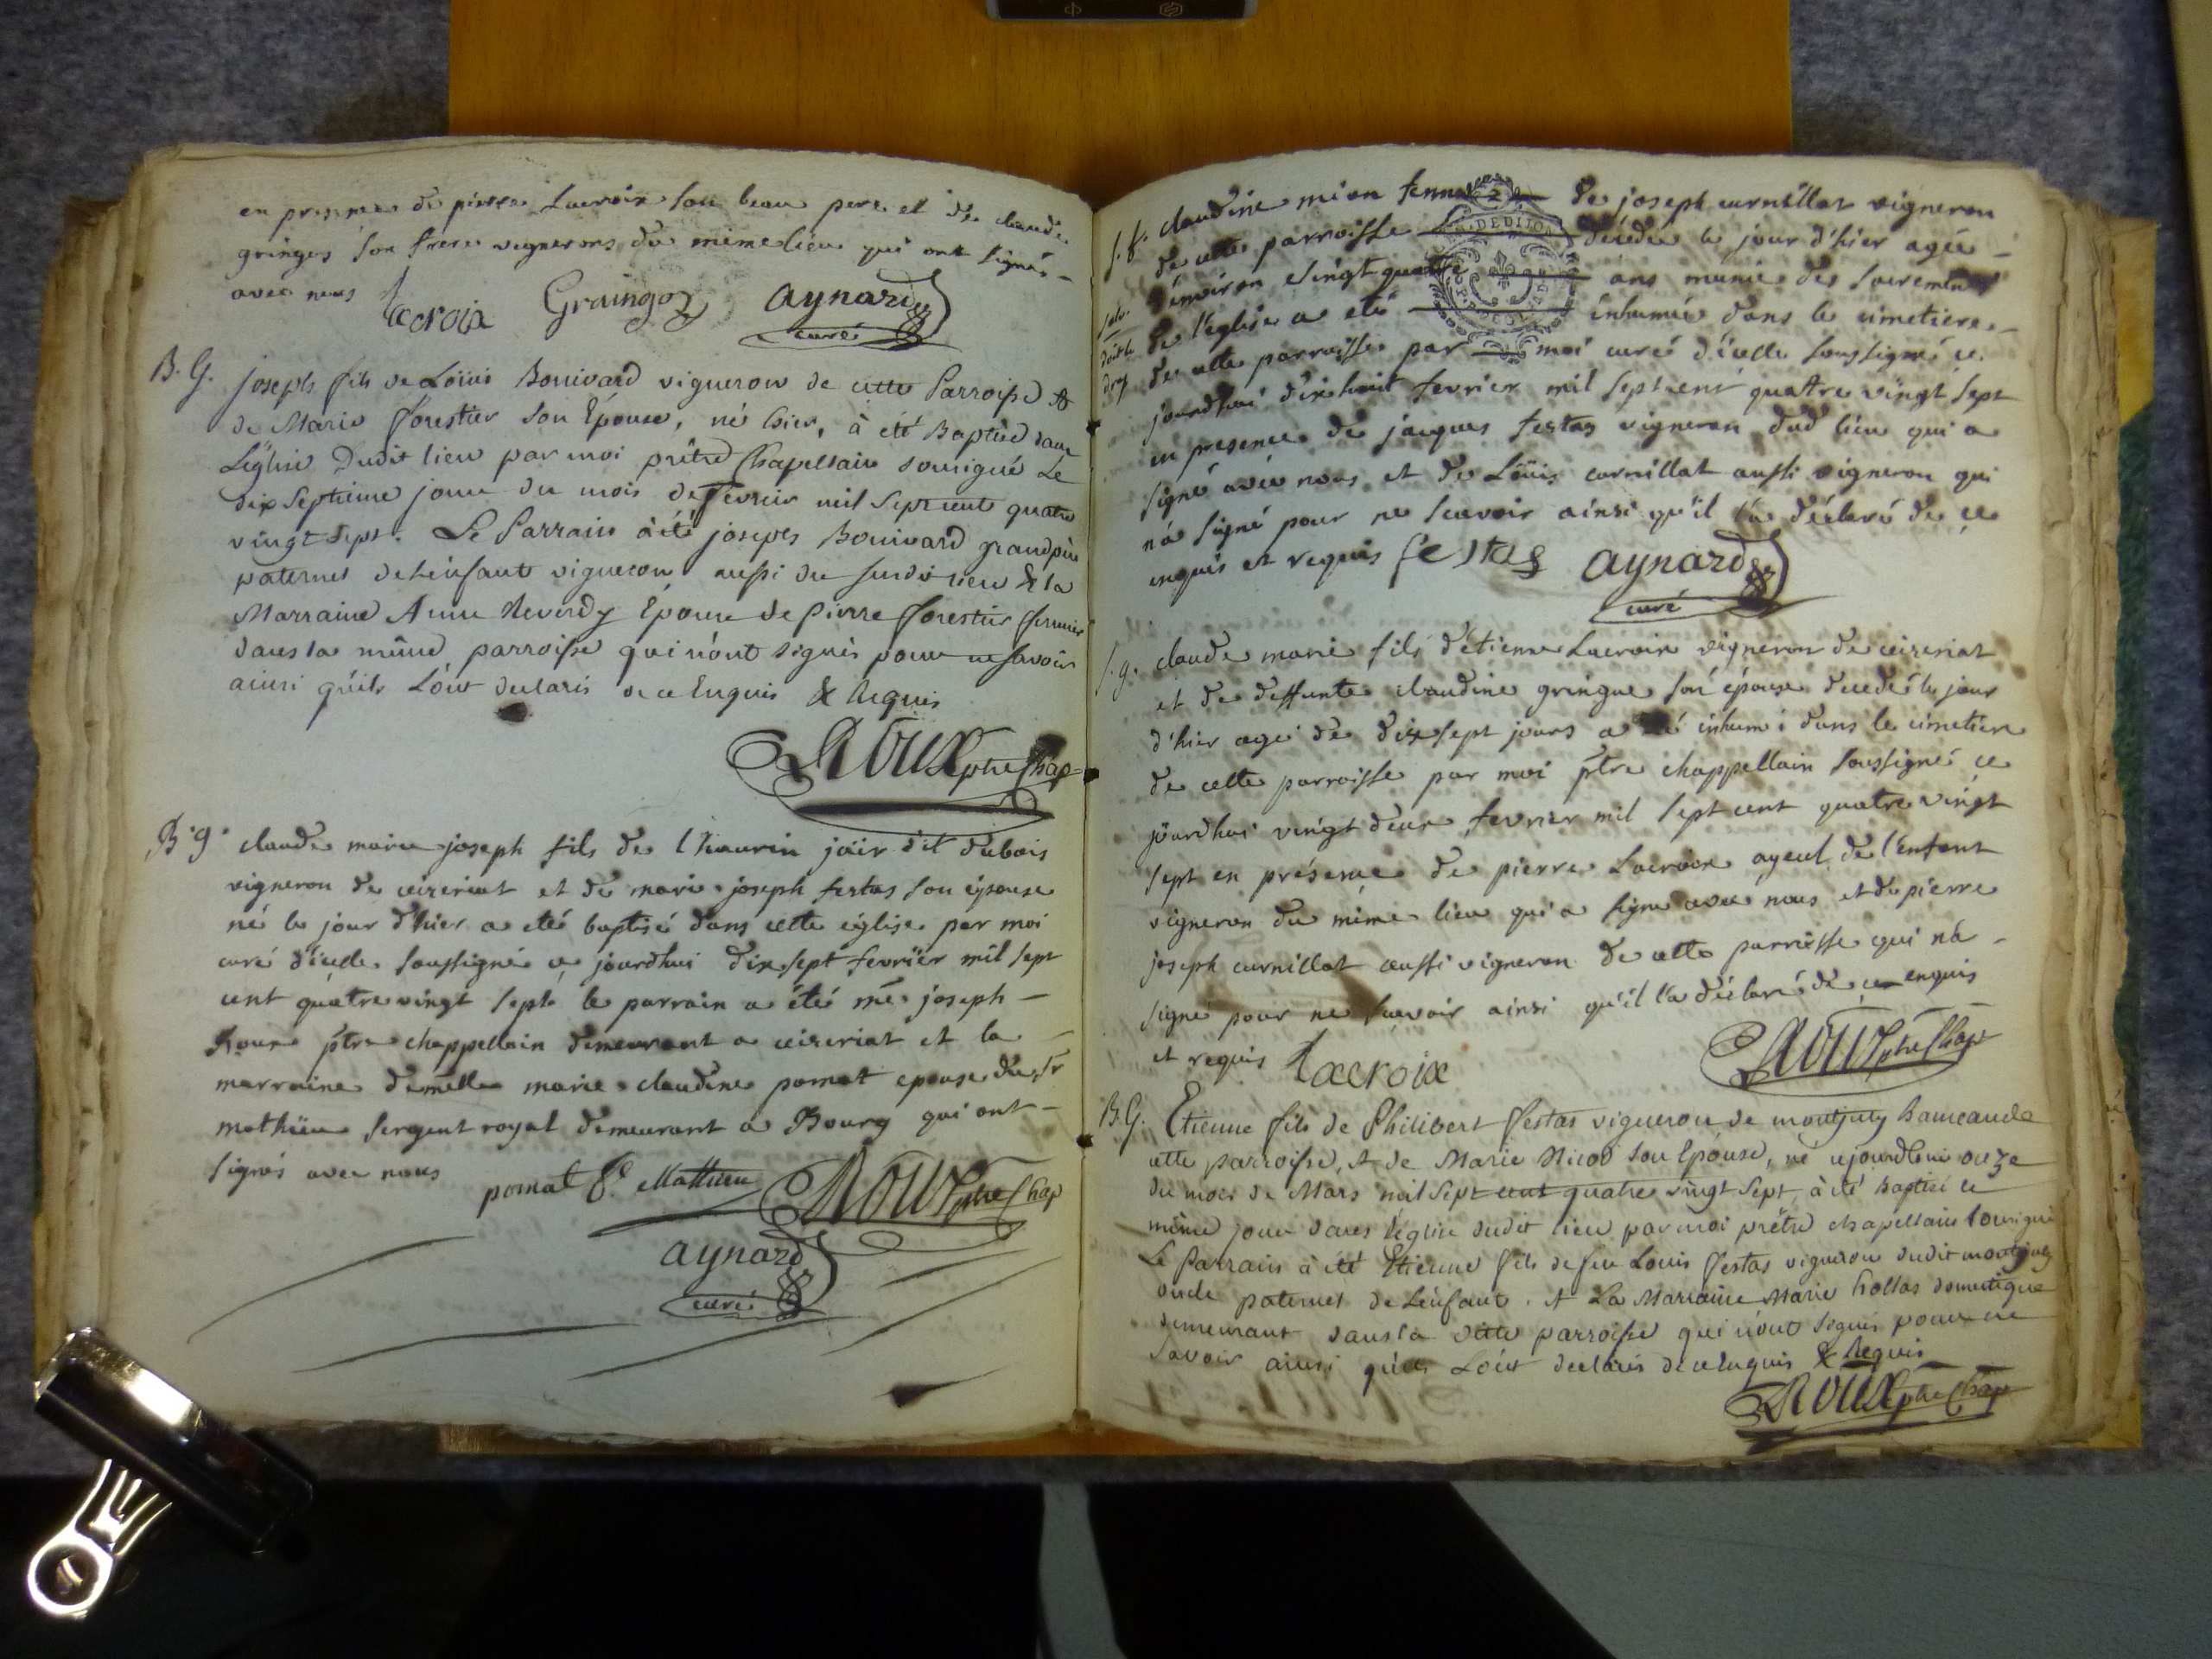 en presence de pierre Lacroix son beau pere et de claude
gringes son frere vignerons du même lieu qui ont signés -
avec nous Lacroix Graingoz aynard
curé
B. G. joseph fils de Loüis Bouivard vigneron de cette Parroisse &
de Marie forestier son Épouse, né hier, à été Baptisé dans
L'église Dudit lieu par moi prêtre Chapellain sousigné Le
dix septieme jour du mois de fevrier mil sept cent quatre
vingt sept. Le Parrain à été joseph Bouivard grandpère
paternel de L'enfant vigneron aussi du susdit lieu & la
Marraine Anne Reverdy Épouse de Pierre forestier fermier
dans la même parroisse qui n'ont signés pour ne savoir
ainsi qu'ils L'ont declarés de ce Enquis & Requis
Roux ptre Chap
B. g. claude marie joseph fils de thaurin jair dit dubois
vigneron de ceizeriat et de marie joseph festas son epouse
né le jour d'hier a eté baptisé dans cette église par moi
curé d'icelle soussigné ce jourdhui dix sept fevrier mil sept
cent quatre vingt sept le parrain a été mre joseph -
Roux ptre chappellain demeurant a ceizeriat et la -
marraine demelle marie claudine pomat epouse du sr
mathieu sergent royal demeurant a Bourg qui ont -
signés avec nous pomat fe Mathieu Roux ptre Chap
aynard
curé
s. f. claudine mion femme de joseph curnillat vigneron
de cette parroisse décédée le jour d'hier agée -
d'environ vingt quatre ans munie des sacrements
de l'église a eté inhumée dans le cimetiere -
de cette parroisse par moi curé d'icelle soussigné ce
jourdhui dix huit fevrier mil sept cent quattre vingt sept
en presence de jacques festas vigneron dud lieu qui a
signé avec nous et de Loüis curnillat aussi vigneron qui
n'a signé pour ne scavoir ainsi qu'il l'a déclaré de ce
enquis et requis festas aynard
curé
s. g. claude marie fils d'étienne Lacroix vigneron de ceizeriat
et de deffunte claudine gringue son épouse decedé le jour
d'hier agé de dix sept jours a été inhumé dans le cimetiere
de cette parroisse par moi ptre chappellain soussigné ce
jourdhui vingt deux fevrier mil sept cent quatre vingt
sept en présence de pierre Lacroix ayeul de l'enfant
vigneron du même lieu qui a signé avec nous et de pierre
joseph curnillat aussi vigneron de cette parroisse qui n'a -
signé pour ne scavoir ainsi qu'il l'a déclaré de ce enquis
et requis Lacroix Roux ptre Chap
B. G. Etienne fils de Philibert festas vigneron de montjuly hameau de
cette parroisse, & de Marie Nicod son Epouse, né cejourdhui onze
du mois de Mars mil sept cent quatre vingt sept, à été baptisé le
même jour dans l'église dudit lieu par moi prêtre chapellain sousigné
Le Parrain à été Etienne fils de feu Louis festas vigneron dudit montjuly
oncle paternel de L'enfant. & La Marraine Marie hollas domestique
demeurant dans la dite parroisse qui n'ont signés pour ne
savoir ainsi qu'ils L'ont declarés de ce Enquis & Requis
Roux ptre Chap